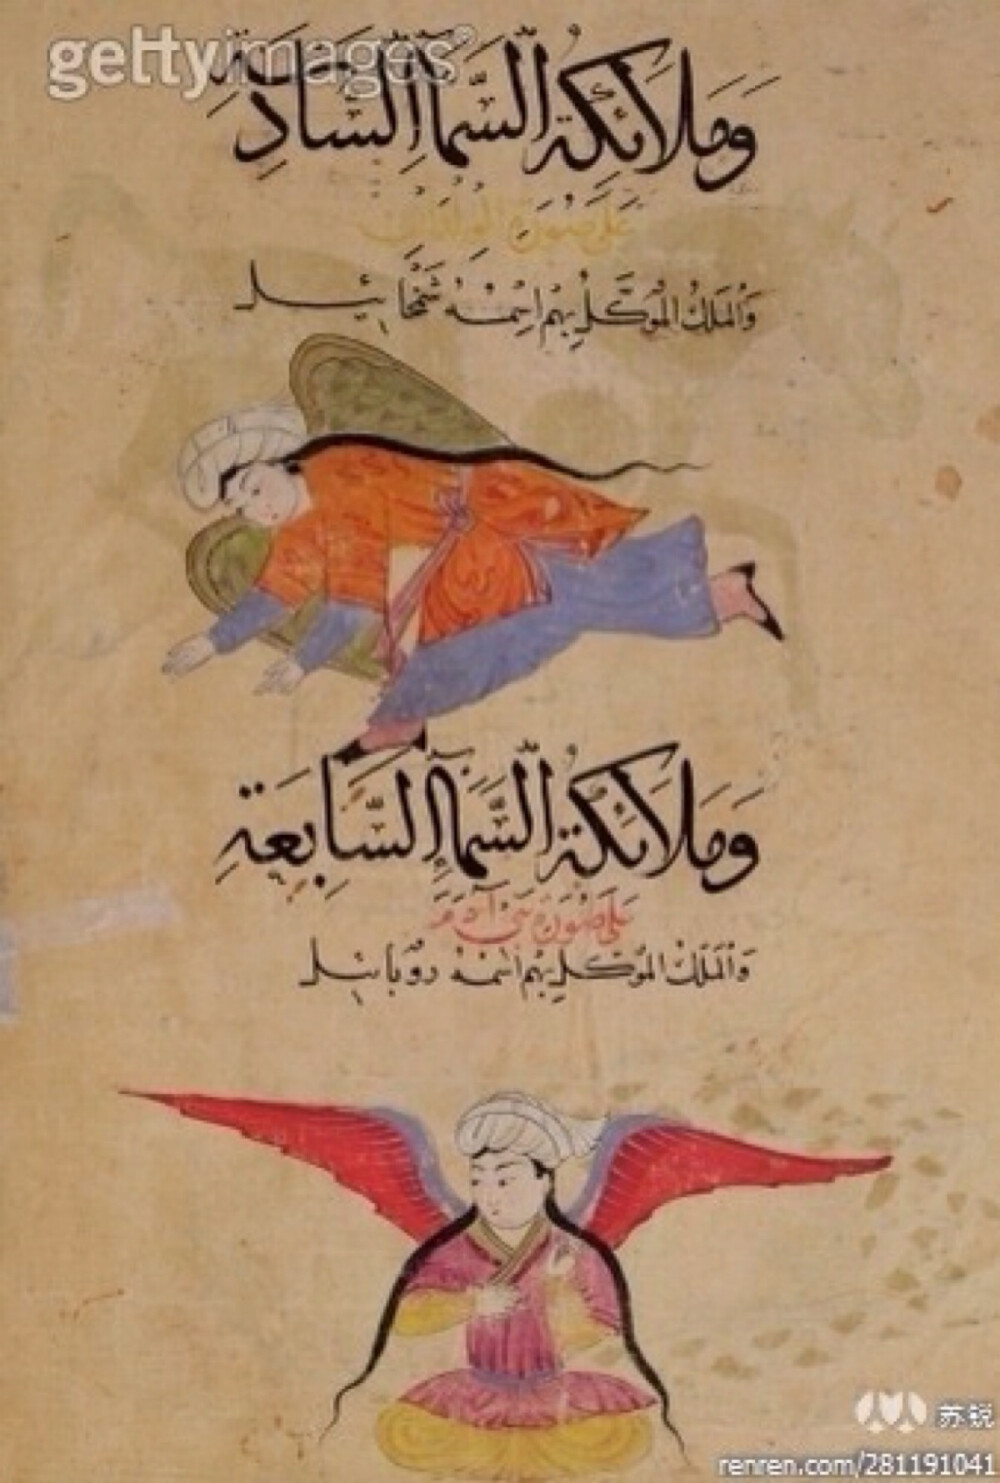 gettyimages
وَمَلَائِكَةُ السَّمَاءِ السَّادِسَةِ
عَلَى صُورَةِ الْوِلْدَانِ
وَالْمَلَكُ الْمُوَكَّلُ بِهِمْ اسْمُهُ شَمْخَائِيل
وَمَلَائِكَةُ السَّمَاءِ السَّابِعَةِ
عَلَى صُورَةِ بَنِي آدَمَ
وَالْمَلَكُ الْمُوَكَّلُ بِهِمْ اسْمُهُ رُوبَائِيل
苏锐
renren.com/281191041